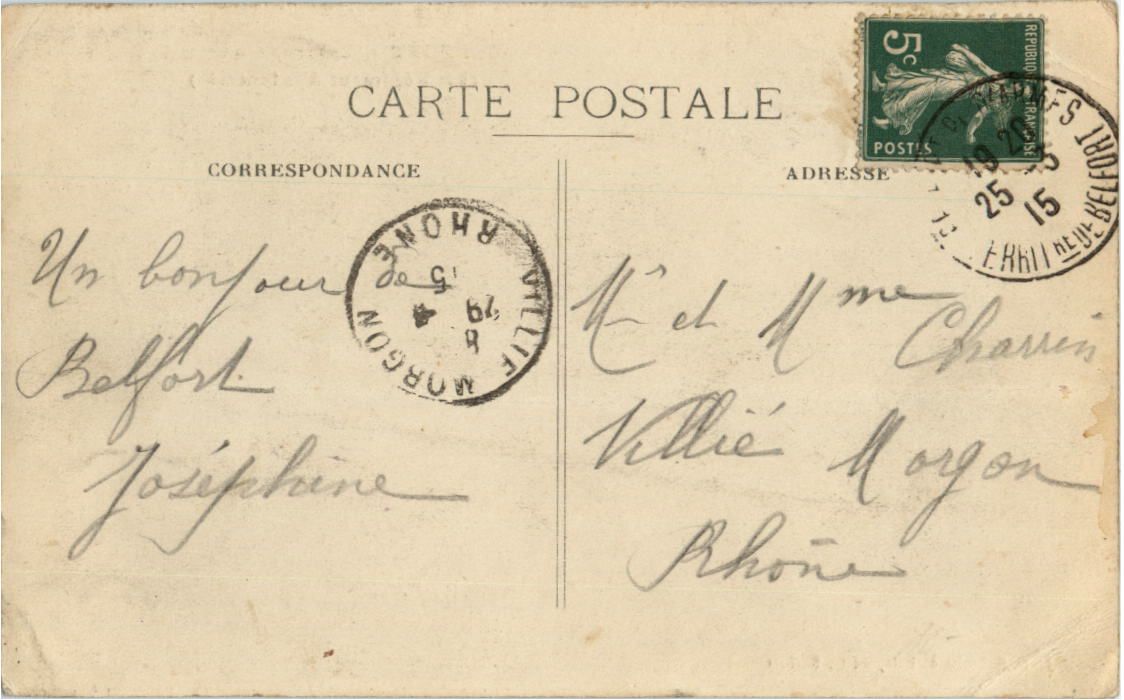 CARTE POSTALE
CORRESPONDANCE
ADRESSE
5c
REPUBLIQUE FRANÇAISE
POSTES
19 20
25 15
BELFORT
VILLIE MORGON
RHONE
Un bonjour de
Belfort
Joséphine
Mr et Mme
Charrin
Villié Morgon
Rhône